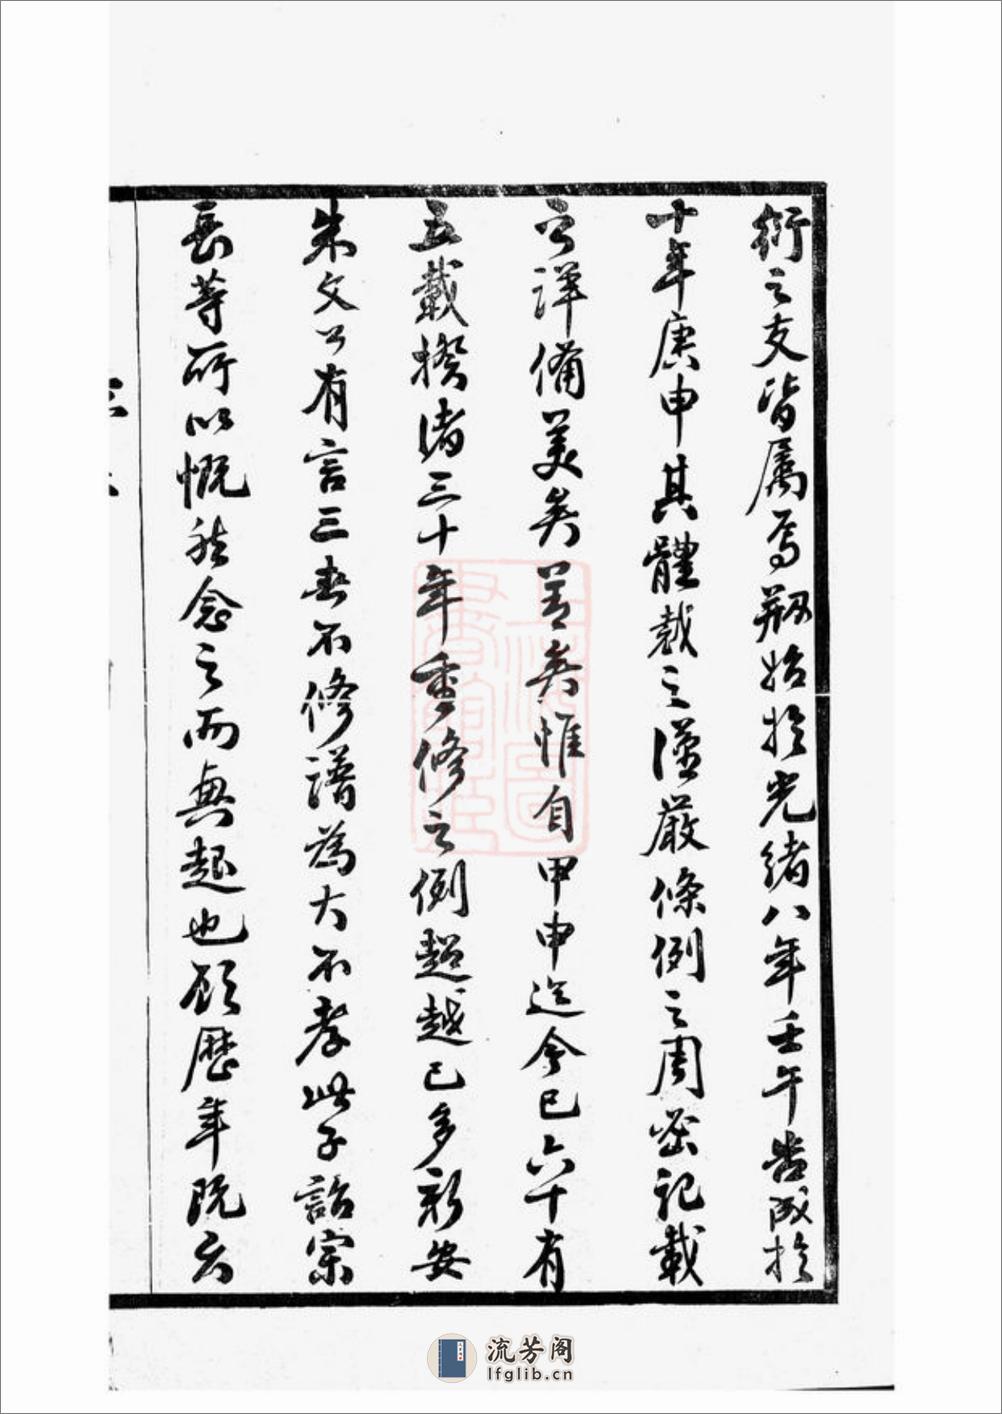 衍之支皆屬焉剏始於光緒八年壬午告成於
十年庚申其體裁之謹嚴條例之周密記載
之詳備美矣善矣惟自甲申迄今已六十有
五載揆諸三十年重修之例超越已多新安
朱文公有言三世不修譜為大不孝此子詒宗
長等所以慨然念之而興起也顧歷年既久
流芳阁
lfglib.cn